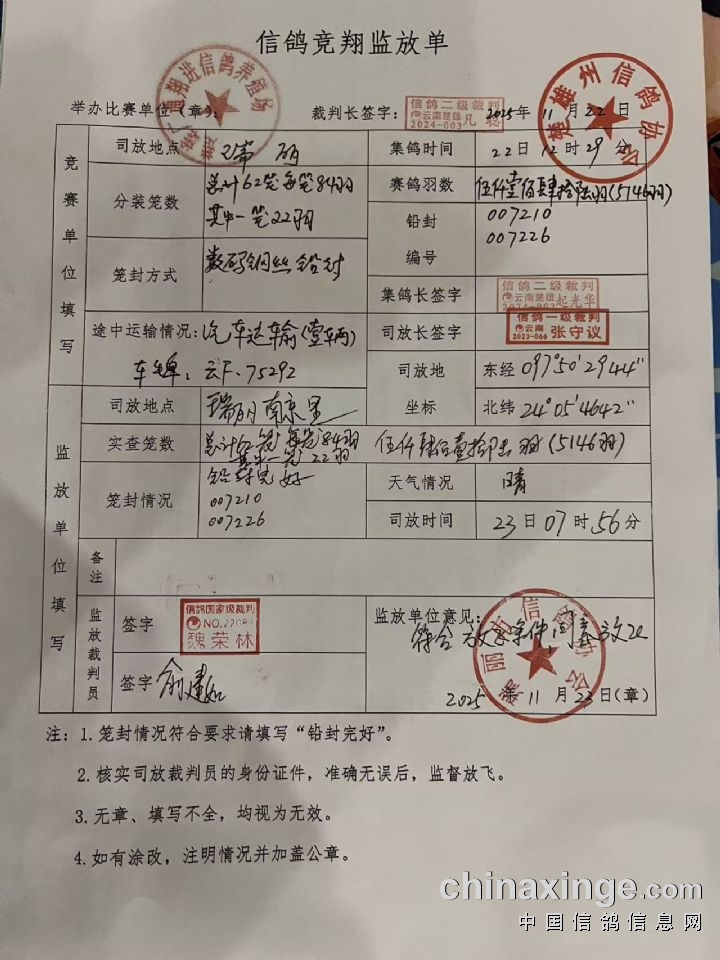 信鸽竞翔监放单
举办比赛单位(章):
翔进信鸽养殖场
裁判长签字:
信鸽二级裁判
云南楚雄
2024-003
2025年11月22日
楚雄州信鸽协会
竞赛单位填写
司放地点 瑞丽
集鸽时间 22日12时29分
分装笼数 总计62笼每笼84羽
其中一笼22羽
赛鸽羽数 伍仟壹佰肆拾陆羽(5146羽)
铅封
编号
007210
007226
笼封方式 数码钢丝铅封
集鸽长签字
信鸽二级裁判
云南楚雄
起光华
途中运输情况:汽车运输(壹辆)
车牌:云F·75292
司放长签字
信鸽一级裁判
云南
2023-066 张守议
司放地
坐标
东经 097°50'2944"
北纬 24°05'4642"
监放单位填写
司放地点 瑞丽
实查笼数 总计62笼 每笼84羽
其中一笼 22羽
(5146羽)
笼封情况 铅封完好
007210
007226
天气情况 晴
司放时间 23日07时56分
备注
监放裁判员
签字
信鸽国家级裁判
魏荣林
签字
监放单位意见:
符合放飞条件,同意放飞
2025年11月23日(章)
注:1.笼封情况符合要求请填写“铅封完好”。
2.核实司放裁判员的身份证件,准确无误后,监督放飞。
3.无章、填写不全,均视为无效。
4.如有涂改,注明情况并加盖公章。
chinaxinge.com
中国信鸽信息网